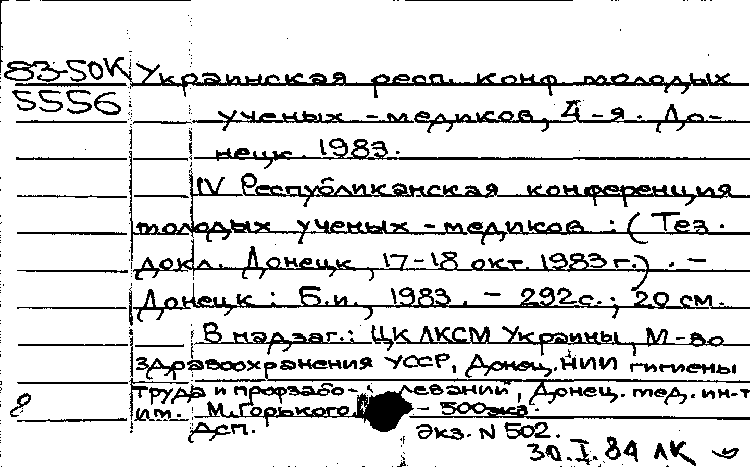 83-50К Украинская респ. конф молодых
5556 ученых - медиков, 4-я. До-
нецк. 1983.
IV Республиканская конференция
молодых ученых - медиков : (Тез.
докл. Донецк, 17-18 окт. 1983 г.). -
Донецк : Б.и., 1983. - 292с.; 20 см.
В надзаг.: ЦК ЛКСМ Украины, М-во
здравоохранения УССР, Донец. НИИ гигиены
труда и профзабо- леваний, Донец. мед. ин-т
им. М. Горького. - 500экз.
Дсп. Экз. N 502.
30.I.84 ЛК